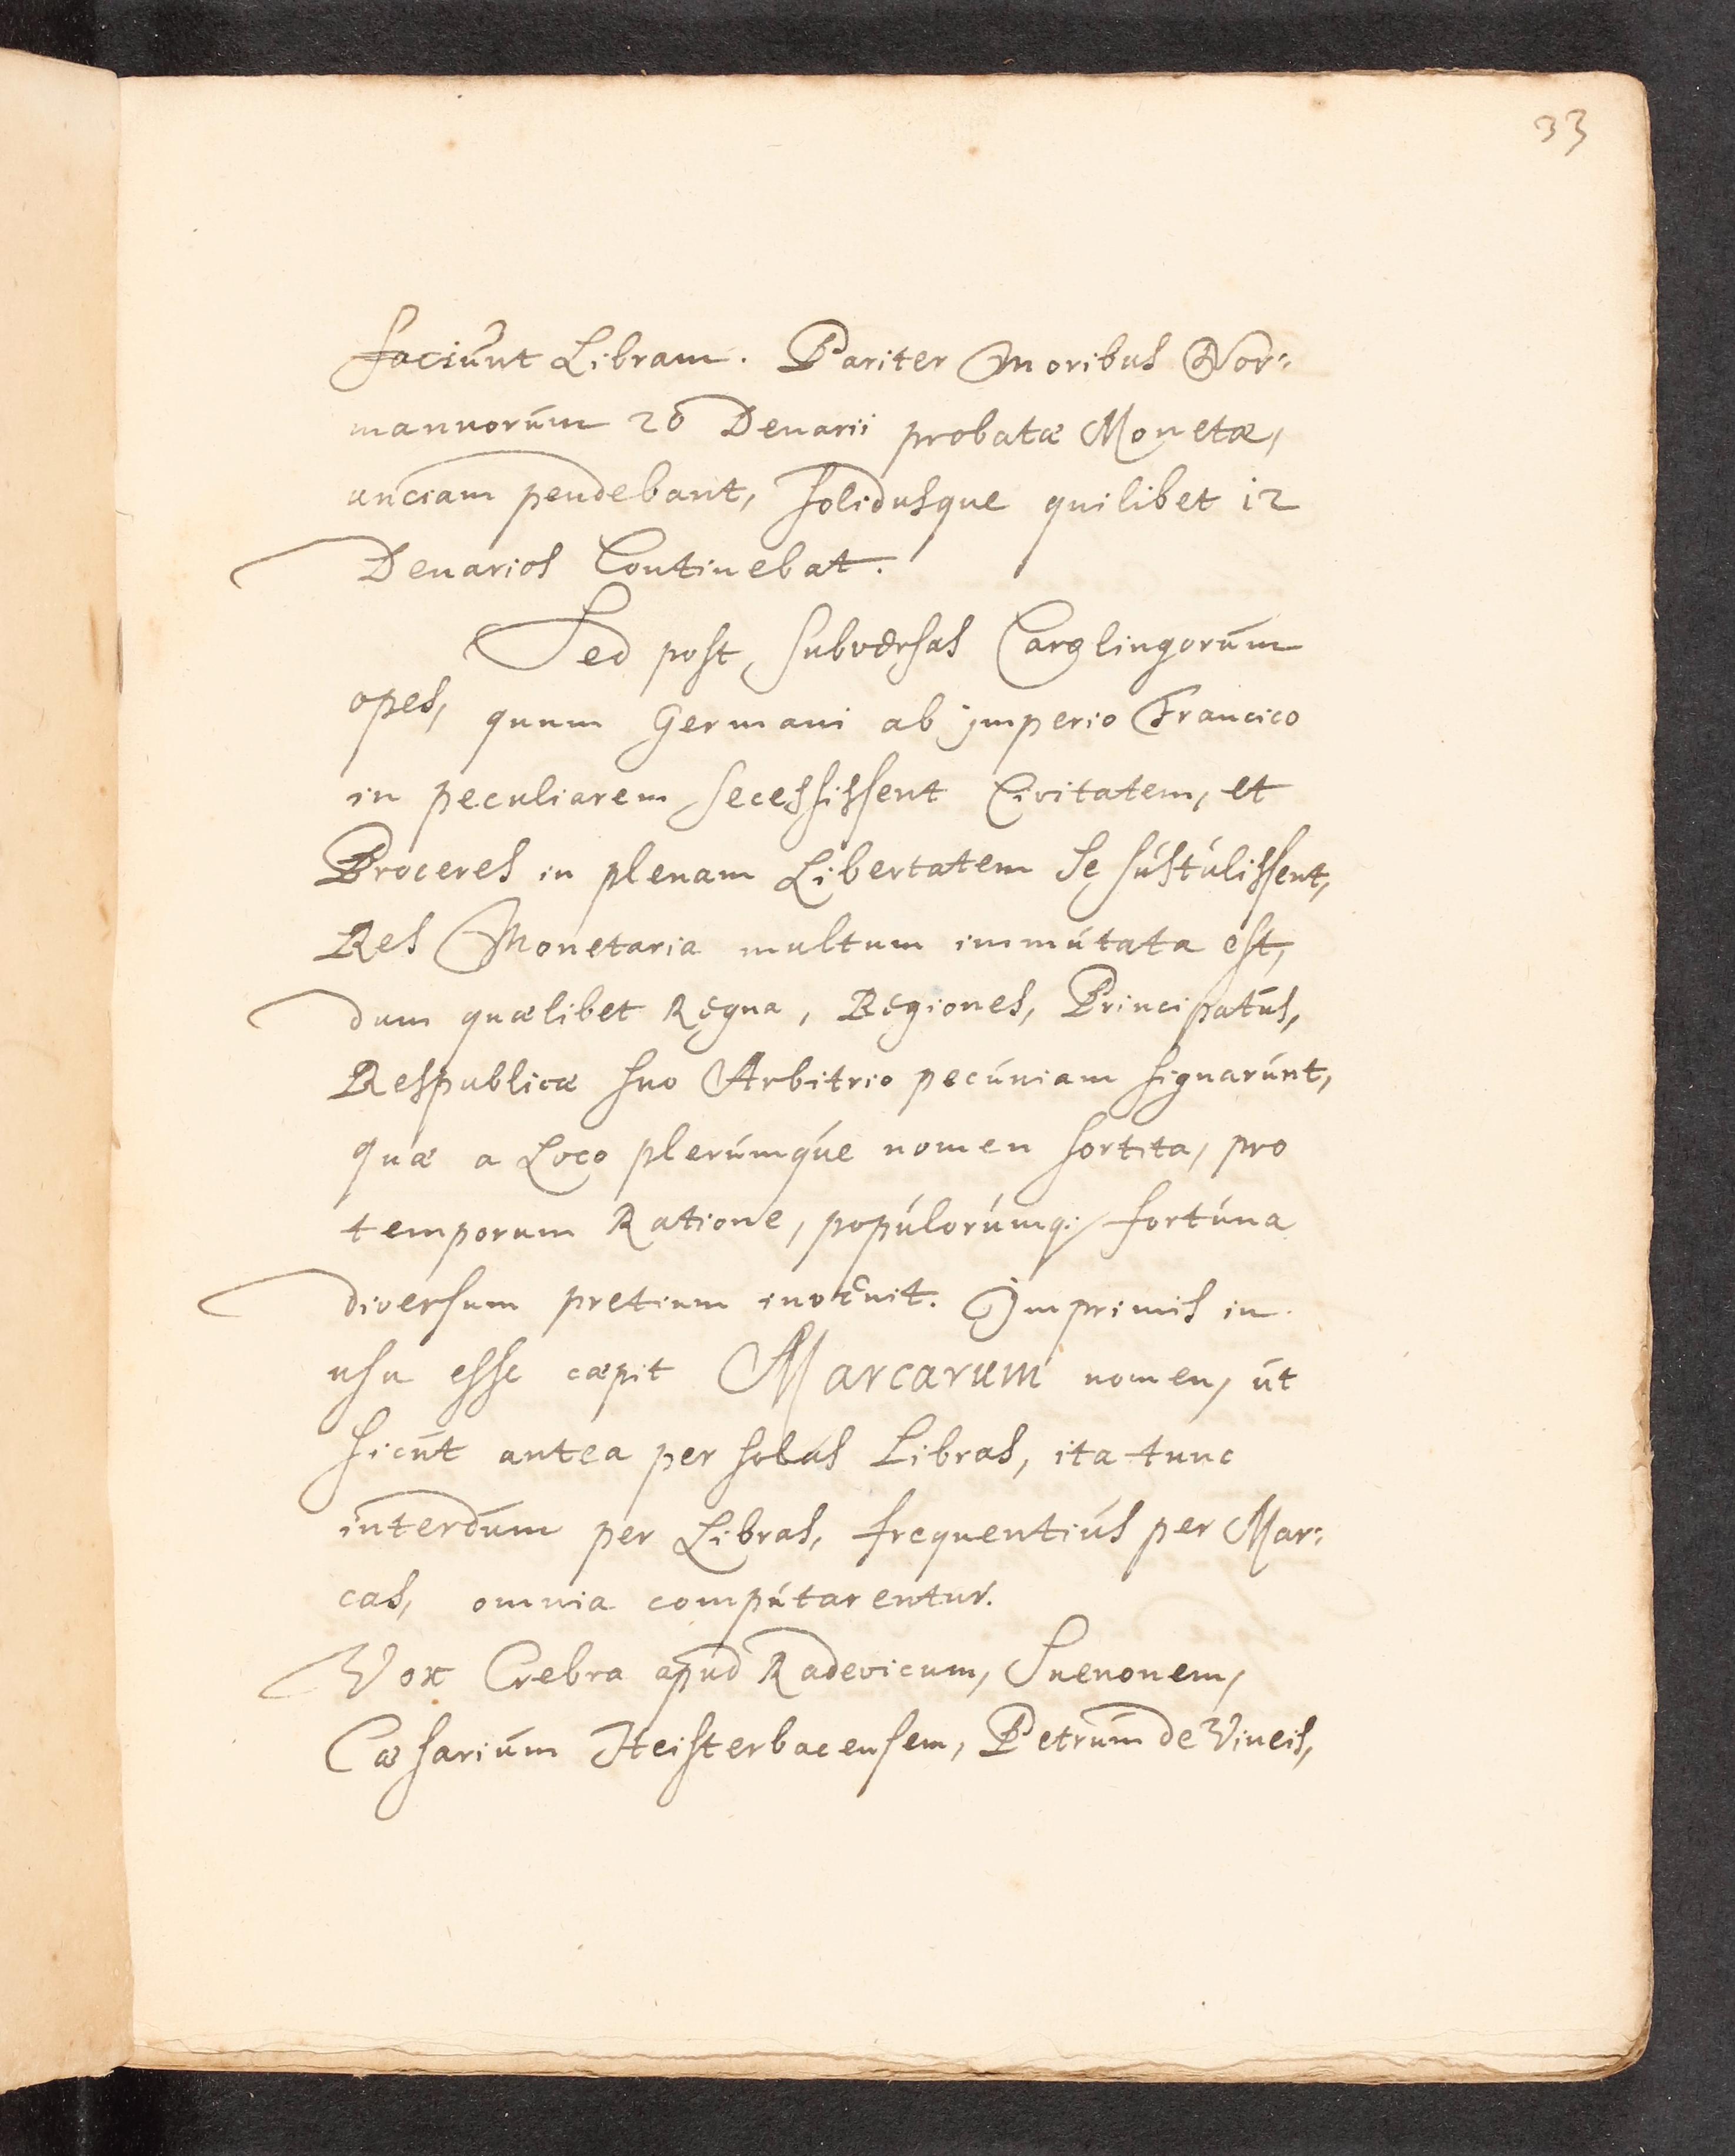 33
faciunt Libram. Pariter Moribus Nor:
mannorum 20 Denarii probatæ Monetæ,
unciam pendebant, solidusque quilibet 12
Denarios Continebat.
Sed post subversas Carolingorum
opes, quum Germani ab jmperio Francico
in peculiarem secessissent Civitatem, et
Proceres in plenam Libertatem se sustulissent,
Res Monetaria multum immutata est,
dum quælibet Regna, Regiones, Principatus,
Respublicæ suo Arbitrio pecuniam signarunt,
quæ a Loco plerumque nomen sortita, pro
temporum Ratione, populorumq; fortuna
diversum pretium invenit. Jmprimis in
usu esse cæpit Marcarum nomen, ut
sicut antea per solas Libras, ita tunc
interdum per Libras, frequentius per Mar:
cas, omnia computarentur.
Vox Crebra apud Radevicum, Suenonem,
Cæsarium Heisterbacensem, Petrum de Vineis,